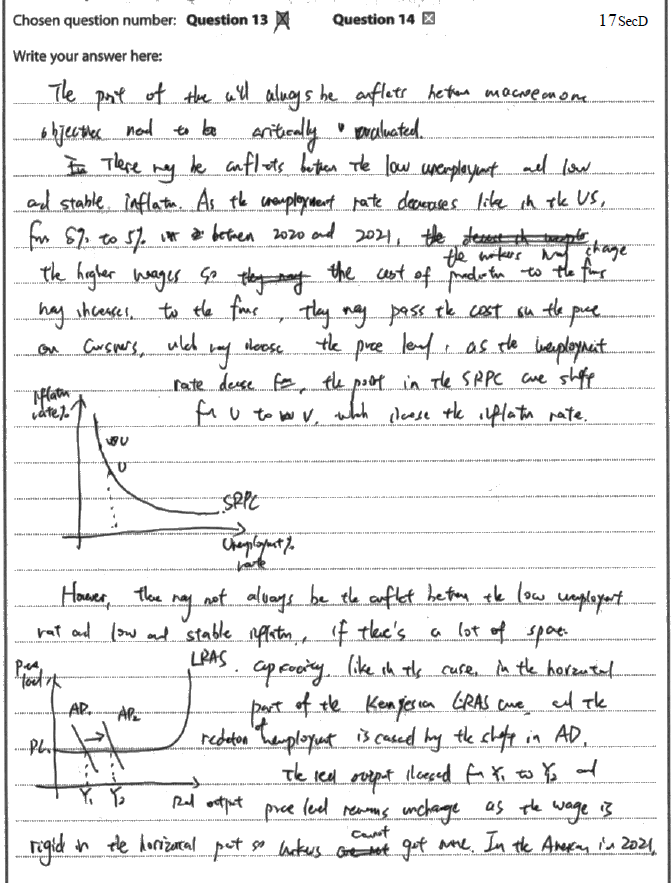 Chosen question number: Question 13 ☒ Question 14 ☒ 17SecD
Write your answer here:
The point of the will always be conflicts between macroeconomic
objectives need to be critically evaluated.
There may be conflicts between the low unemployment and low
and stable inflation. As the unemployment rate decreases like in the US,
from 8% to 5% between 2020 and 2021, the
the workers may charge
the higher wages so the cost of production to the firms
may increases. to the firms, they may pass the cost on the price
on consumers, which may increase the price level, as the unemployment
rate the point in the SRPC curve shift
from U to V, which increase the inflation rate.
Inflation
rate%
U
SRPC
Unemployment%
rate
However, there may not always be the conflict between the low unemployment
rate and low and stable inflation, if there's a lot of spare
Price
level
LRAS
capacity, like in this case, in the horizontal
AD1
AD2
part of the Keynesian LRAS curve, and the
PL
reduction of unemployment is caused by the shift in AD.
The real output increased from Y1 to Y2 and
Y1 Y2 Real output
price level remains unchange as the wage is
rigid in the horizontal part so workers cannot get more. In the American in 2021,